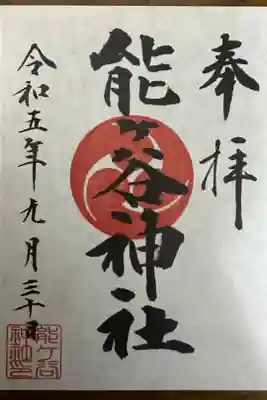 奉拝
能ヶ谷神社
令和五年九月三十日
能ヶ谷
神社印